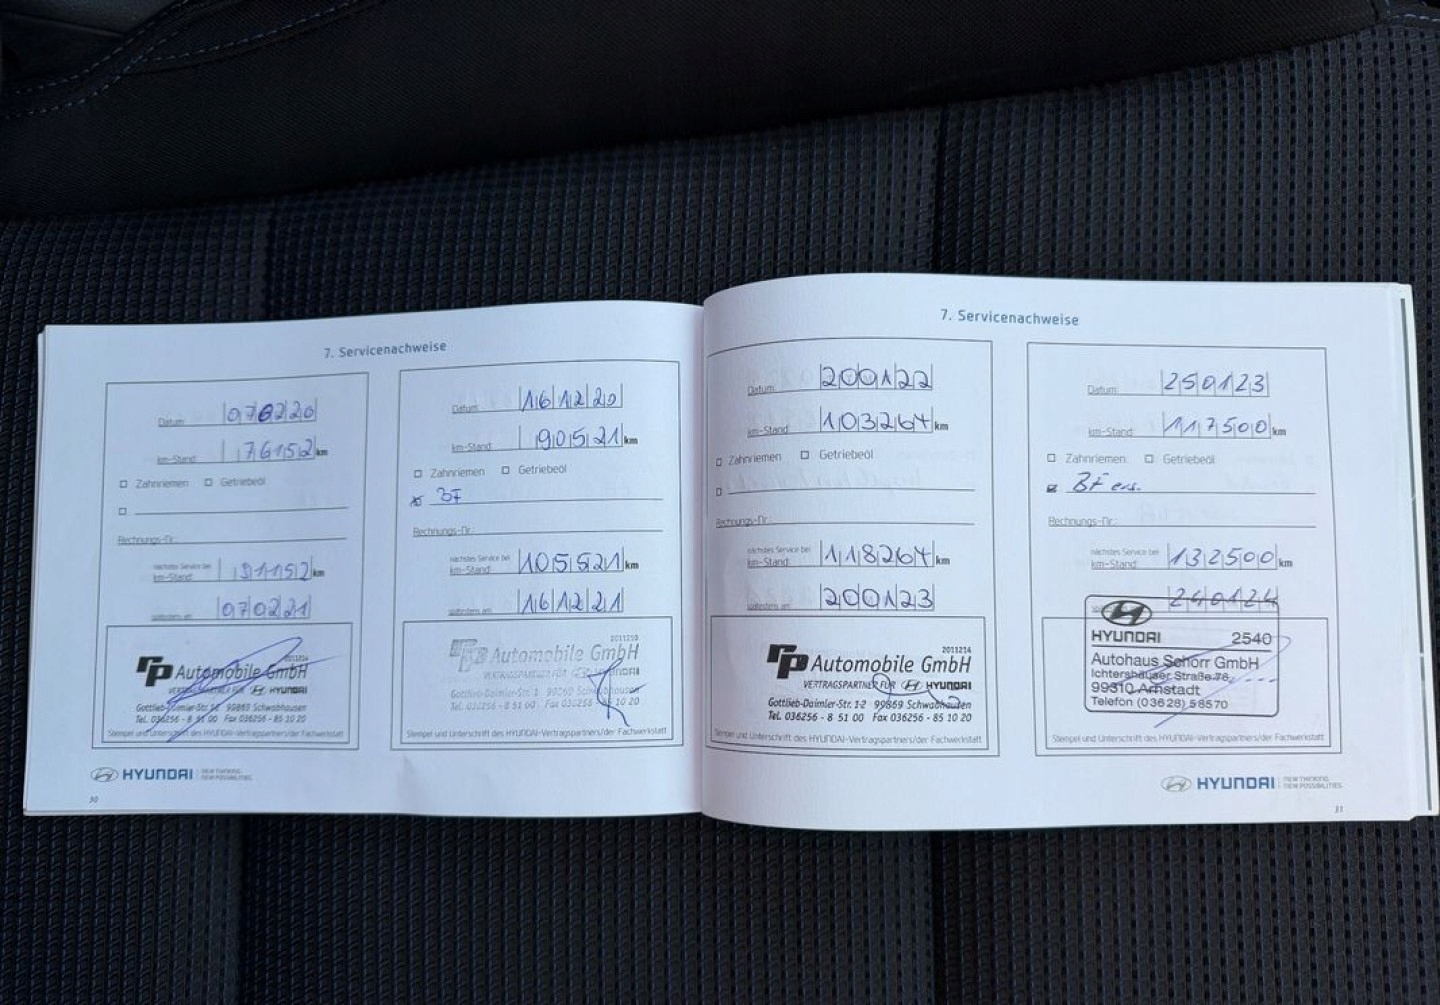 7. Servicenachweise
Datum: 070220
km-Stand: 76152 km
Zahnriemen Getriebeöl
Rechnungs-Nr.:
nächstes Service bei
km-Stand: 91152 km
spätestens am: 070221
rp Automobile GmbH
2011214
VERTRAGSPARTNER FÜR HYUNDAI
Gottlieb-Daimler-Str. 99869 Schwabhausen
Tel. 036256 - 8 51 00 Fax 036256 - 85 10 20
Stempel und Unterschrift des HYUNDAI-Vertragspartners/der Fachwerkstatt
HYUNDAI NEW THINKING. NEW POSSIBILITIES.
30
Datum: 161220
km-Stand: 90521 km
Zahnriemen Getriebeöl
BF
Rechnungs-Nr.:
nächstes Service bei
km-Stand: 105521 km
spätestens am: 161221
2011210
rp Automobile GmbH
VERTRAGSPARTNER FÜR HYUNDAI
Gottlieb-Daimler-Str. 1 99869 Schwabhausen
Tel. 036256 - 8 51 00 Fax 036256 - 85 10 20
Stempel und Unterschrift des HYUNDAI-Vertragspartners/der Fachwerkstatt
7. Servicenachweise
Datum: 200122
km-Stand: 103264 km
Zahnriemen Getriebeöl
Rechnungs-Nr.:
nächstes Service bei
km-Stand: 118264 km
spätestens am: 200123
2011214
rp Automobile GmbH
VERTRAGSPARTNER FÜR HYUNDAI
Gottlieb-Daimler-Str. 1-2 99869 Schwabhausen
Tel. 036256 - 8 51 00 Fax 036256 - 85 10 20
Stempel und Unterschrift des HYUNDAI-Vertragspartners/der Fachwerkstatt
Datum: 250123
km-Stand: 117500 km
Zahnriemen Getriebeöl
BF ers.
Rechnungs-Nr.:
nächstes Service bei
km-Stand: 132500 km
240124
HYUNDAI 2540
Autohaus Schorr GmbH
Ichtershäuser Straße 78
99310 Arnstadt
Telefon (03628) 58570
Stempel und Unterschrift des HYUNDAI-Vertragspartners/der Fachwerkstatt
HYUNDAI NEW THINKING. NEW POSSIBILITIES.
31